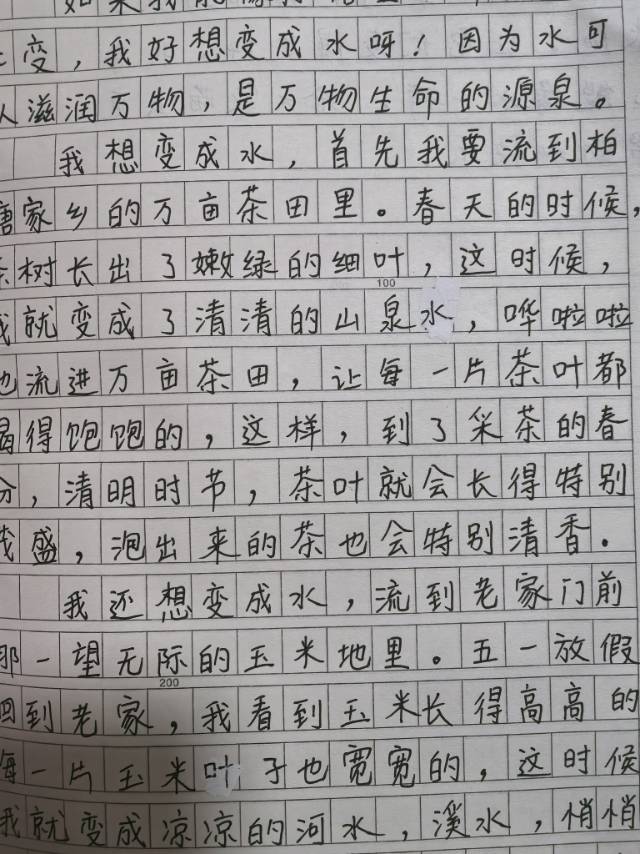 变，我好想变成水呀！因为水可
滋润万物，是万物生命的源泉。
我想变成水，首先我要流到柏
家乡的万亩茶田里。春天的时候，
树长出了嫩绿的细叶，这时候，
100
就变成了清清的山泉水，哗啦啦
地流进万亩茶田，让每一片茶叶都
喝得饱饱的，这样，到了采茶的春
分，清明时节，茶叶就会长得特别
茂盛，泡出来的茶也会特别清香．
我还想变成水，流到老家门前
那一望无际的玉米地里。五一放假
200
回到老家，我看到玉米长得高高的
每一片玉米叶子也宽宽的，这时候
我就变成凉凉的河水，溪水，悄悄